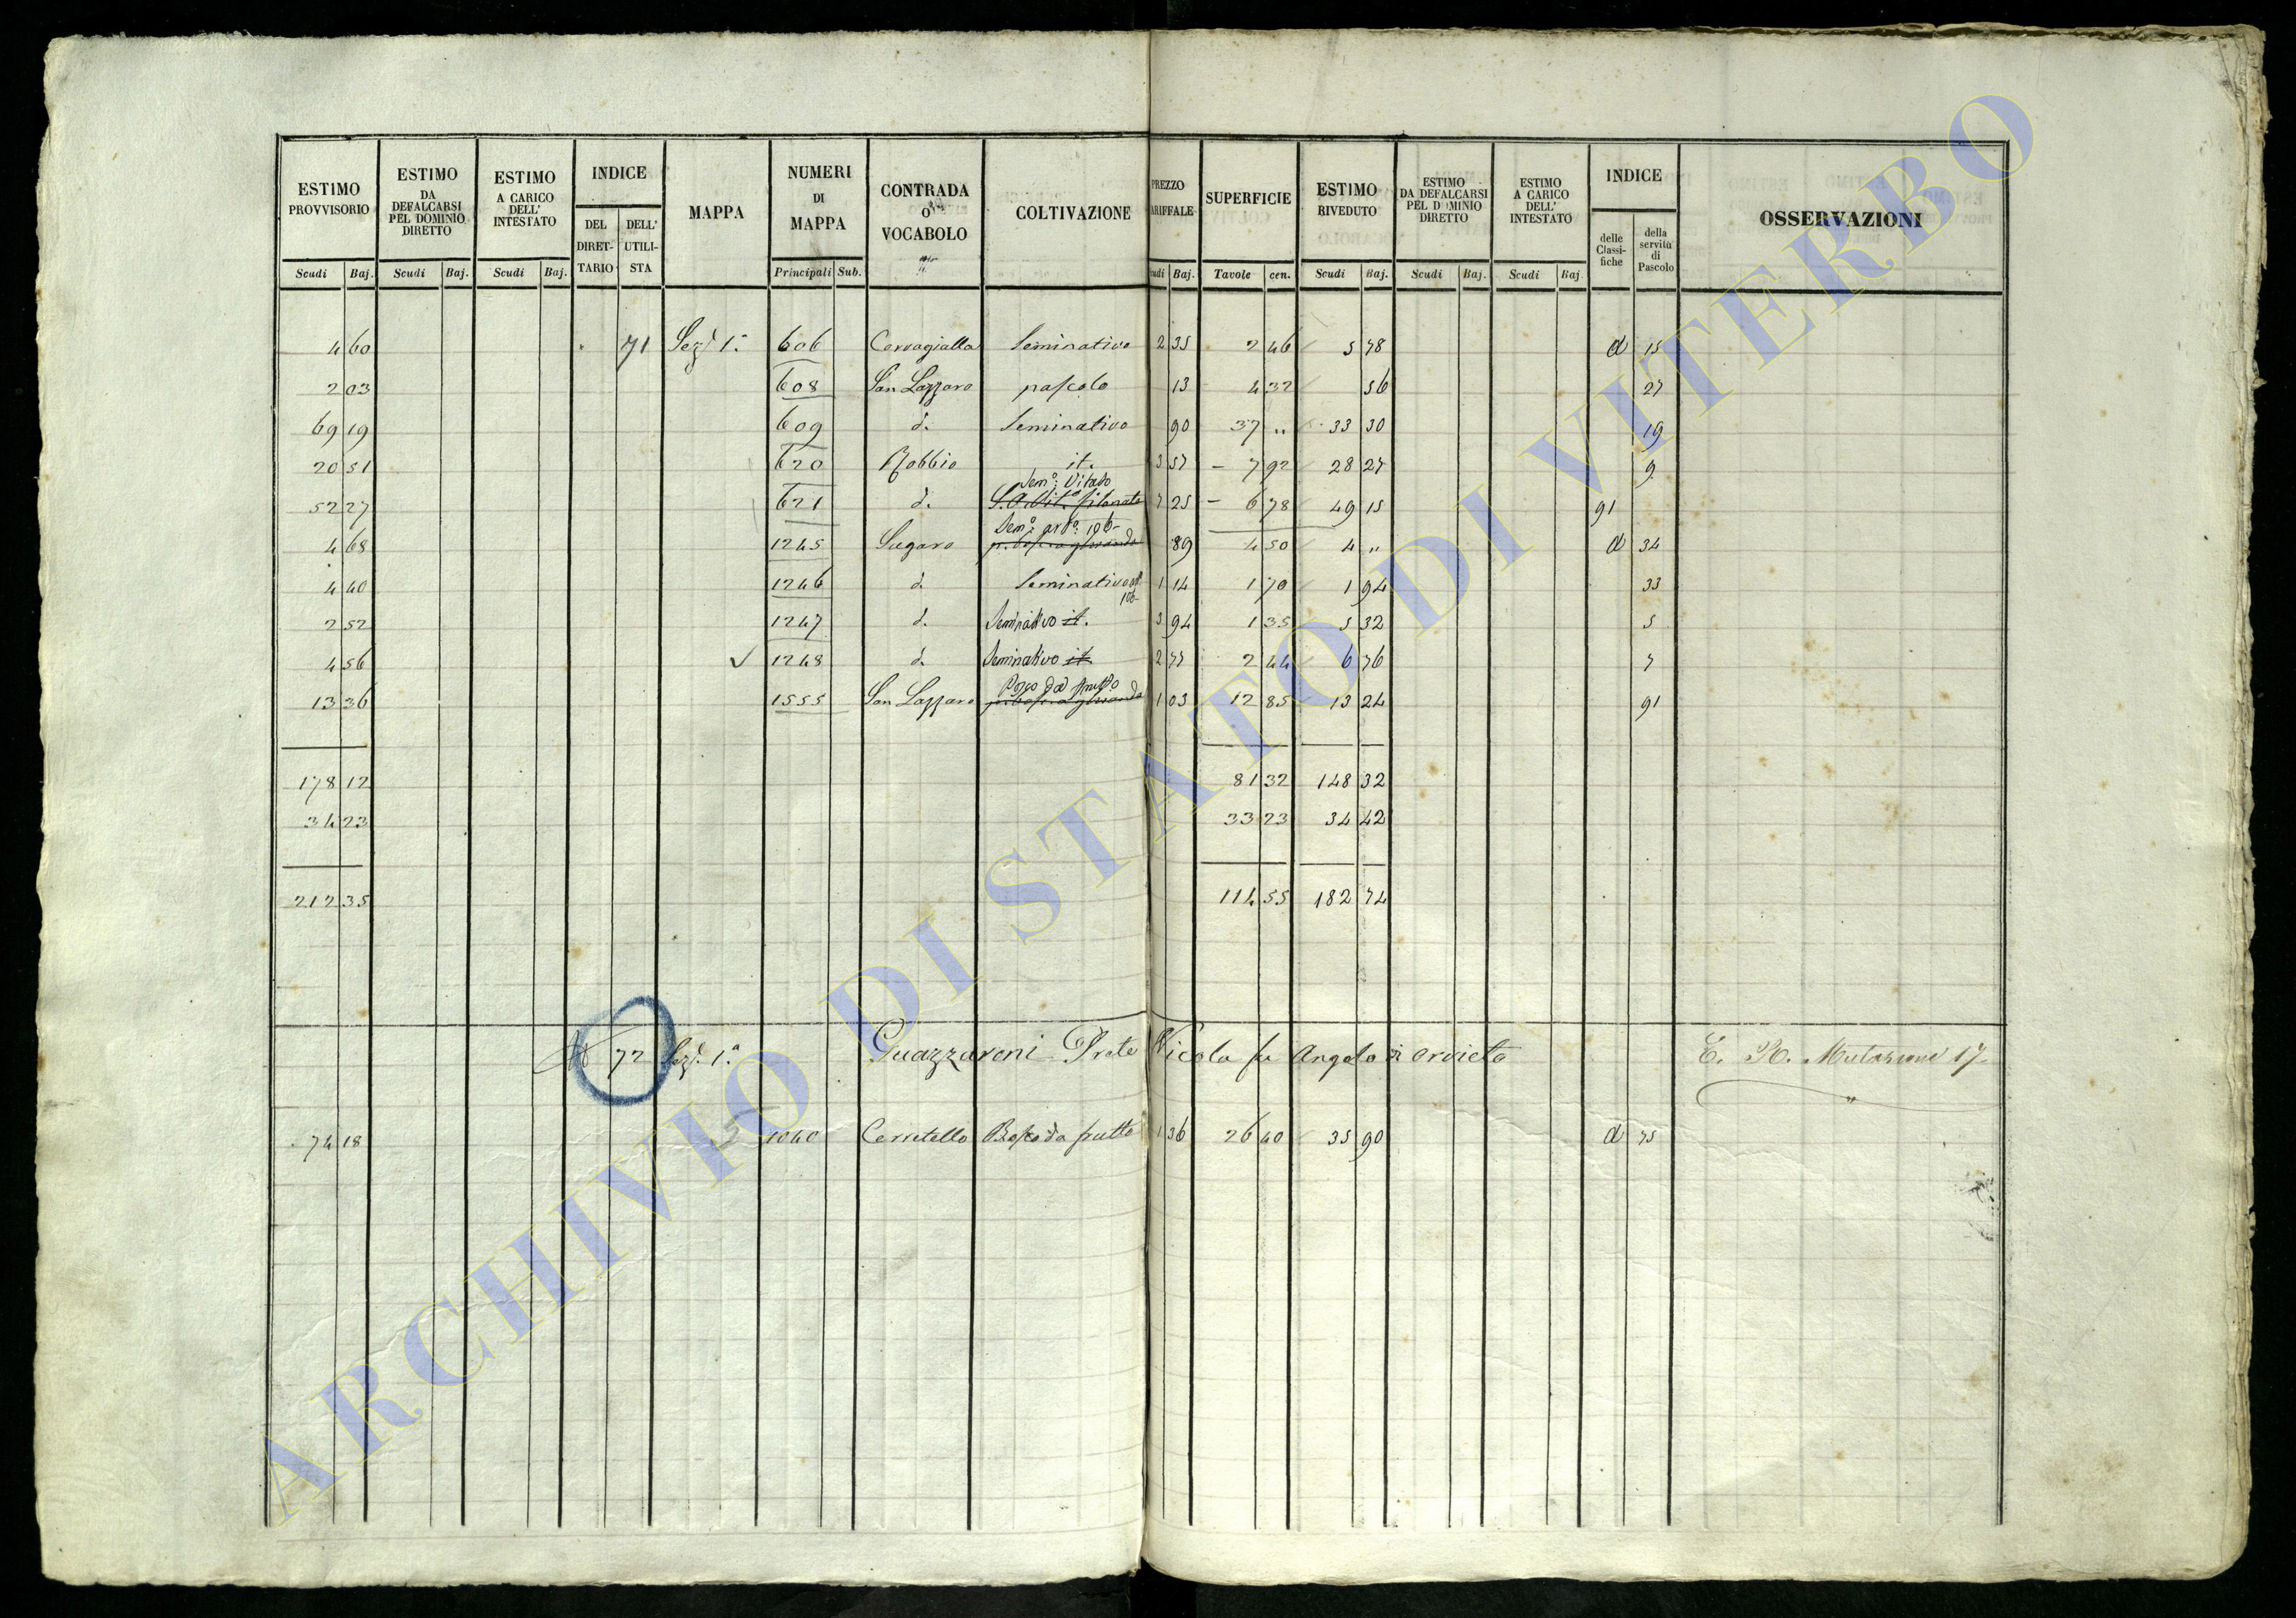 ESTIMO PROVVISORIO | ESTIMO DA DEFALCARSI PEL DOMINIO DIRETTO | ESTIMO A CARICO DELL' INTESTATO | INDICE | MAPPA | NUMERI DI MAPPA | CONTRADA O VOCABOLO | COLTIVAZIONE | PREZZO ARIFFALE | SUPERFICIE | ESTIMO RIVEDUTO | ESTIMO DA DEFALCARSI PEL DOMINIO DIRETTO | ESTIMO A CARICO DELL' INTESTATO | INDICE | OSSERVAZIONI
DEL DIRETTARIO | DELL' UTILISTA | delle Classifiche | della servitù di Pascolo
Scudi | Baj. | Scudi | Baj. | Scudi | Baj. | Principali | Sub. | udi | Baj. | Tavole | cen. | Scudi | Baj. | Scudi | Baj. | Scudi | Baj
4 60 | 71 | Sez.e 1.a | 606 | Cervagialla | Seminativo | 2 35 | 2 46 | 5 78 | d | 15
2 03 | 608 | San Lazzaro | pascolo | 13 | 4 32 | 56 | 27
69 19 | 609 | d. | Seminativo | 90 | 37 " | 33 30 | 19
20 51 | 620 | Robbio | it. | 3 57 | 7 92 | 28 27 | 9
Sem.o Vitato
52 27 | 621 | d. | 7 25 | 6 78 | 49 15 | 91
4 68 | 1245 | Sugaro | 89 | 4 50 | 4 " | d | 34
4 40 | 1246 | d. | Seminativo | 1 14 | 1 70 | 1 94 | 33
2 52 | 1247 | d. | Seminativo it. | 3 94 | 1 35 | 5 32 | 5
4 56 | 1248 | d. | Seminativo it. | 2 77 | 2 44 | 6 76 | 7
Bosco da frutto
13 36 | 1555 | San Lazzaro | 1 03 | 12 85 | 13 24 | 91
178 12 | 81 32 | 148 32
34 23 | 33 23 | 34 42
212 35 | 114 55 | 182 74
72 Sez.e 1.a | Guazzaroni Prete Nicola fu Angelo di Orvieto | E. R. Mutazione 17
74 18 | 1040 | Cerretello | Bosco da frutto | 1 36 | 26 40 | 35 90 | d | 75
ARCHIVIO DI STATO DI VITERBO